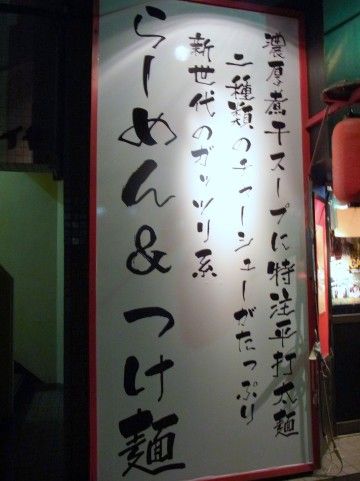 濃厚煮干スープに特注平打太麺
二種類のチャーシューがたっぷり
新世代のガッツリ系
らーめん&つけ麺